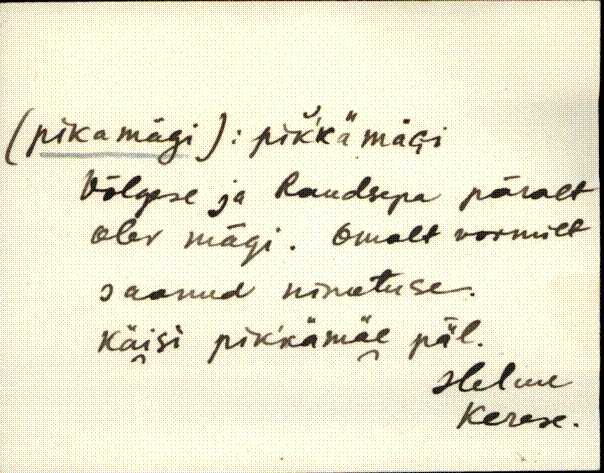 (pikamägi): pik̆'kämäGi
Võlgese ja Raudsepa päralt
olev mägi. Omalt vormilt
saanud nimetuse.
Käi̮si pik'kämäe̮ päl.
Helme
Kerese.